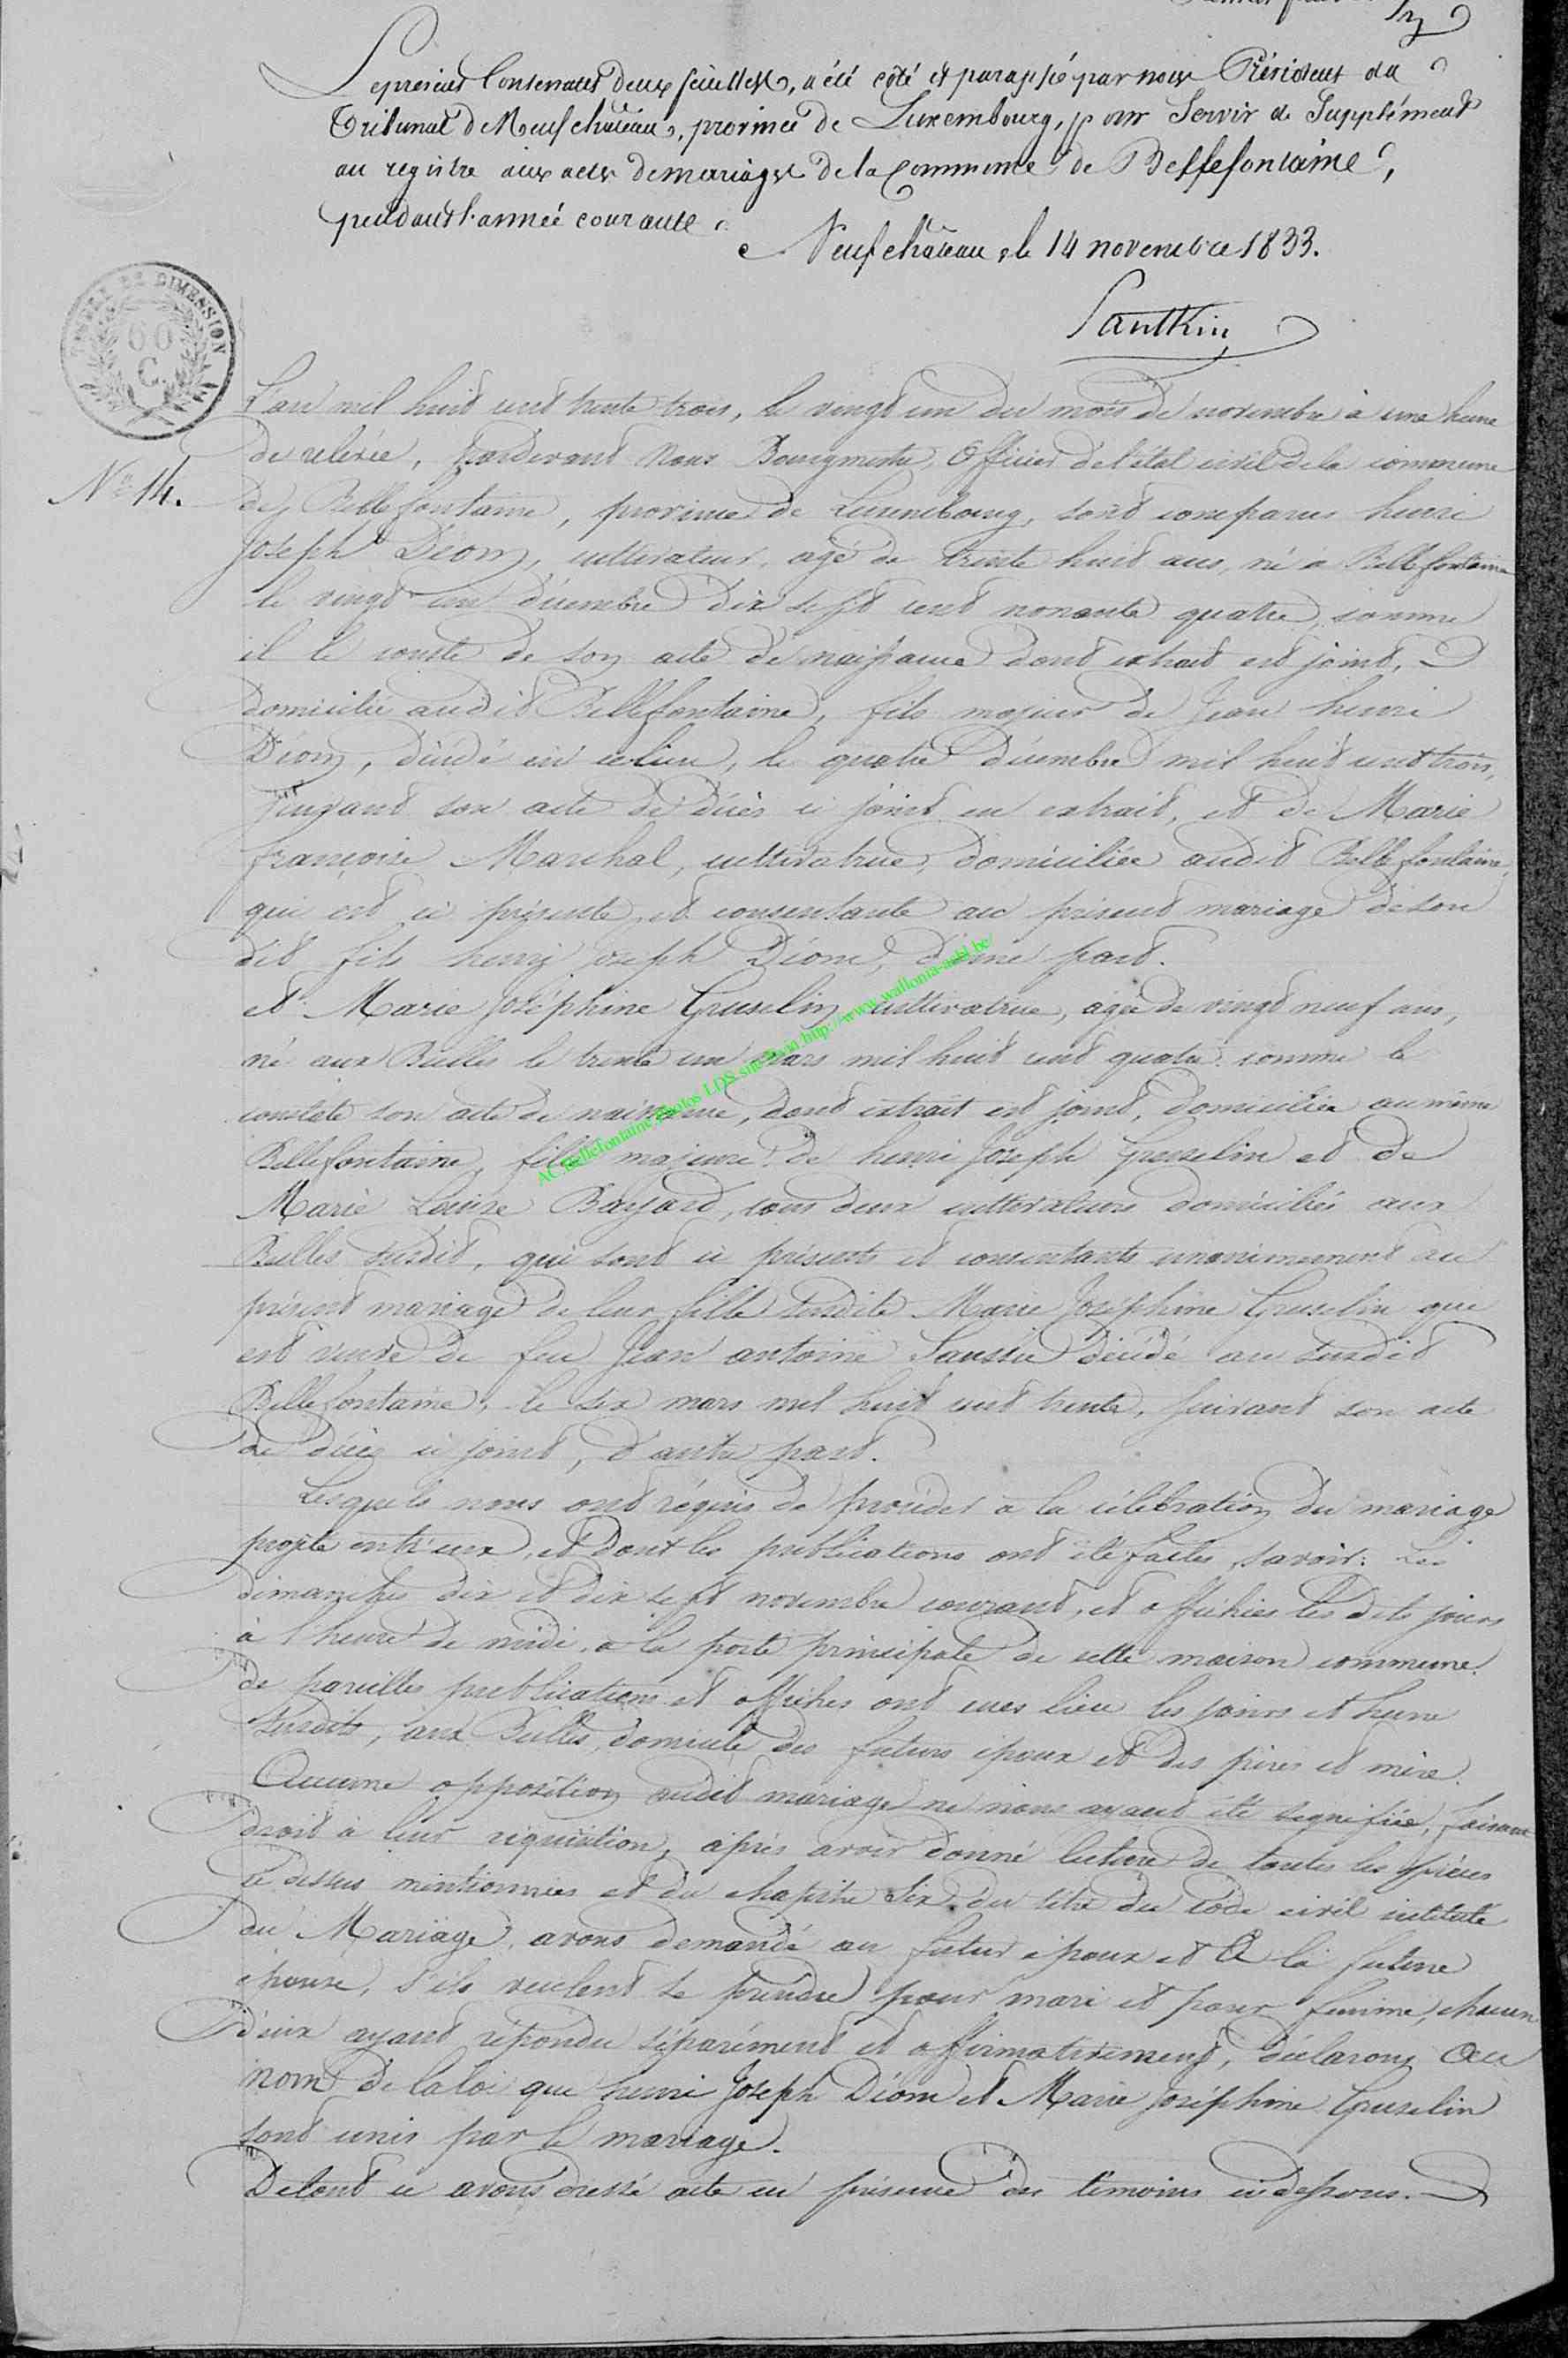 Le présent contenant deux feuillets, a été coté et paraphé par nous Président du
Tribunal de Neufchâteau, province de Luxembourg, pour Servir de Supplément
au registre aux actes de mariages de la Commune de Bellefontaine,
pendant l'année courante.
Neufchâteau, le 14 novembre 1833.
Santkin
TIMBRE DE DIMENSION
60
C.
L'an mil huit cent trente trois, le vingt un du mois de novembre à une heure
de relevée, Pardevant Nous Bourgmestre, Officier de l'état civil de la commune
N° 14.
de Bellefontaine, province de Luxembourg, sont comparus henri
Joseph Déom, cultivateur, agé de trente huit ans, né à Bellefontaine
le vingt un décembre dix sept cent nonante quatre, comme
il le conste de son acte de naissance dont extrait est joint,
domicilié audit Bellefontaine, fils majeur de Jean henri
Déom, décédé en ce lieu, le quatre décembre mil huit cent trois,
suivant son acte de décès ci joint en extrait, et de Marie
françoise Marchal, cultivatrice, domiciliée audit Bellefontaine,
qui est ci présente, et consentante au présent mariage de son
dit fils henry Joseph Déom, d'une part.
et Marie Joséphine Gruselin cultivatrice, agée de vingt neuf ans,
né aux Bulles le trente un mars mil huit cent quatre comme le
constate son acte de naissance, dont extrait est joint, domiciliée au même
Bellefontaine, fille majeure de henri Joseph Gruselin et de
Marie Louise Bayard, tous deux cultivateurs domiciliés aux
Bulles susdit, qui sont ci présents et consentants unanimement au
présent mariage de leur fille susdite Marie Joséphine Gruselin que
est veuve de feu Jean antoine décédé au susdit
Bellefontaine, le six mars mil huit cent trente, suivant son acte
de décès ci joint, d'autre part.
Lesquels nous ont réquis de procéder à la célébration du mariage
projeté entr'eux, et dont les publications ont été faites, savoir: Les
dimanches dix et dix sept novembre courant, et affichées les dits jours
à l'heure de midi, à la porte principale de cette maison commune.
de pareilles publications et affiches ont eues lieu les jours et heure
susdits, aux Bulles, domicile des futurs époux et des pères et mère.
Aucune opposition audit mariage ne nous ayant été signifiée, faisant
droit à leur réquisition, après avoir donné lecture de toutes les pièces
ci dessus mentionnées et du chapitre Six du titre du Code civil intitulé
du Mariage, avons demandé au futur époux et à la future
épouse, s'ils veulent se prendre pour mari et pour femme, chacun
d'eux ayant répondu séparément et affirmativement, déclarons Au
Nom de la loi que henri Joseph Déom et Marie Joséphine Gruselin
sont unis par le mariage.
De tout ce avons dressé acte en présence des témoins ci dessous.
AC Bellefontaine photos LDS site via http://www.wallonia-asbl.be/